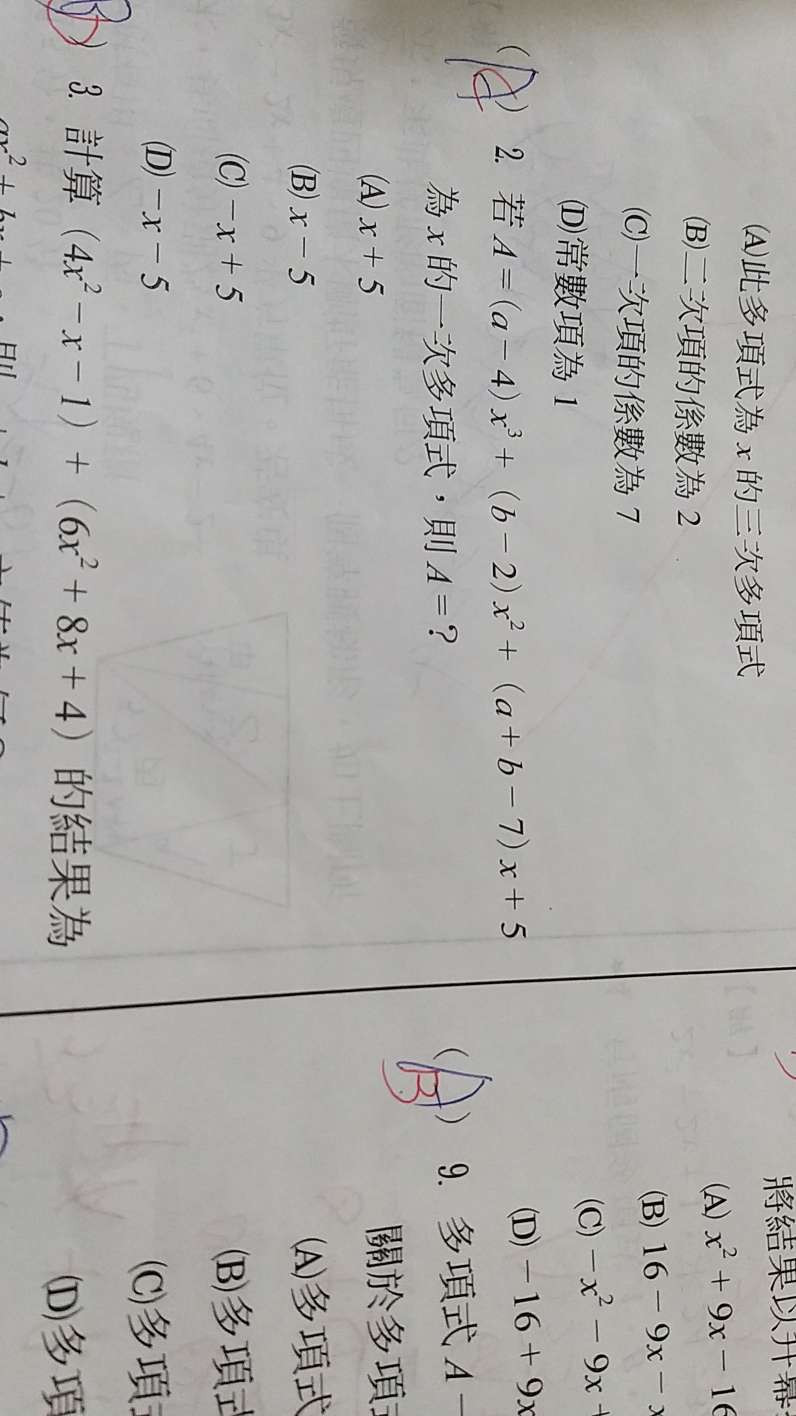 (A)此多項式為 x 的三次多項式
(B)二次項的係數為 2
(C)一次項的係數為 7
(D)常數項為 1
( ) 2. 若 A=(a-4)x³+(b-2)x²+(a+b-7)x+5
為 x 的一次多項式，則 A=?
(A) x+5
(B) x-5
(C) -x+5
(D) -x-5
B ) 3. 計算 (4x²-x-1)+(6x²+8x+4) 的結果為
將結果以升冪
(A) x²+9x-16
(B) 16-9x-x
(C) -x²-9x+
(D) -16+9x
(B) 9. 多項式 A-
關於多項
(A)多項式
(B)多項式
(C)多項
(D)多項